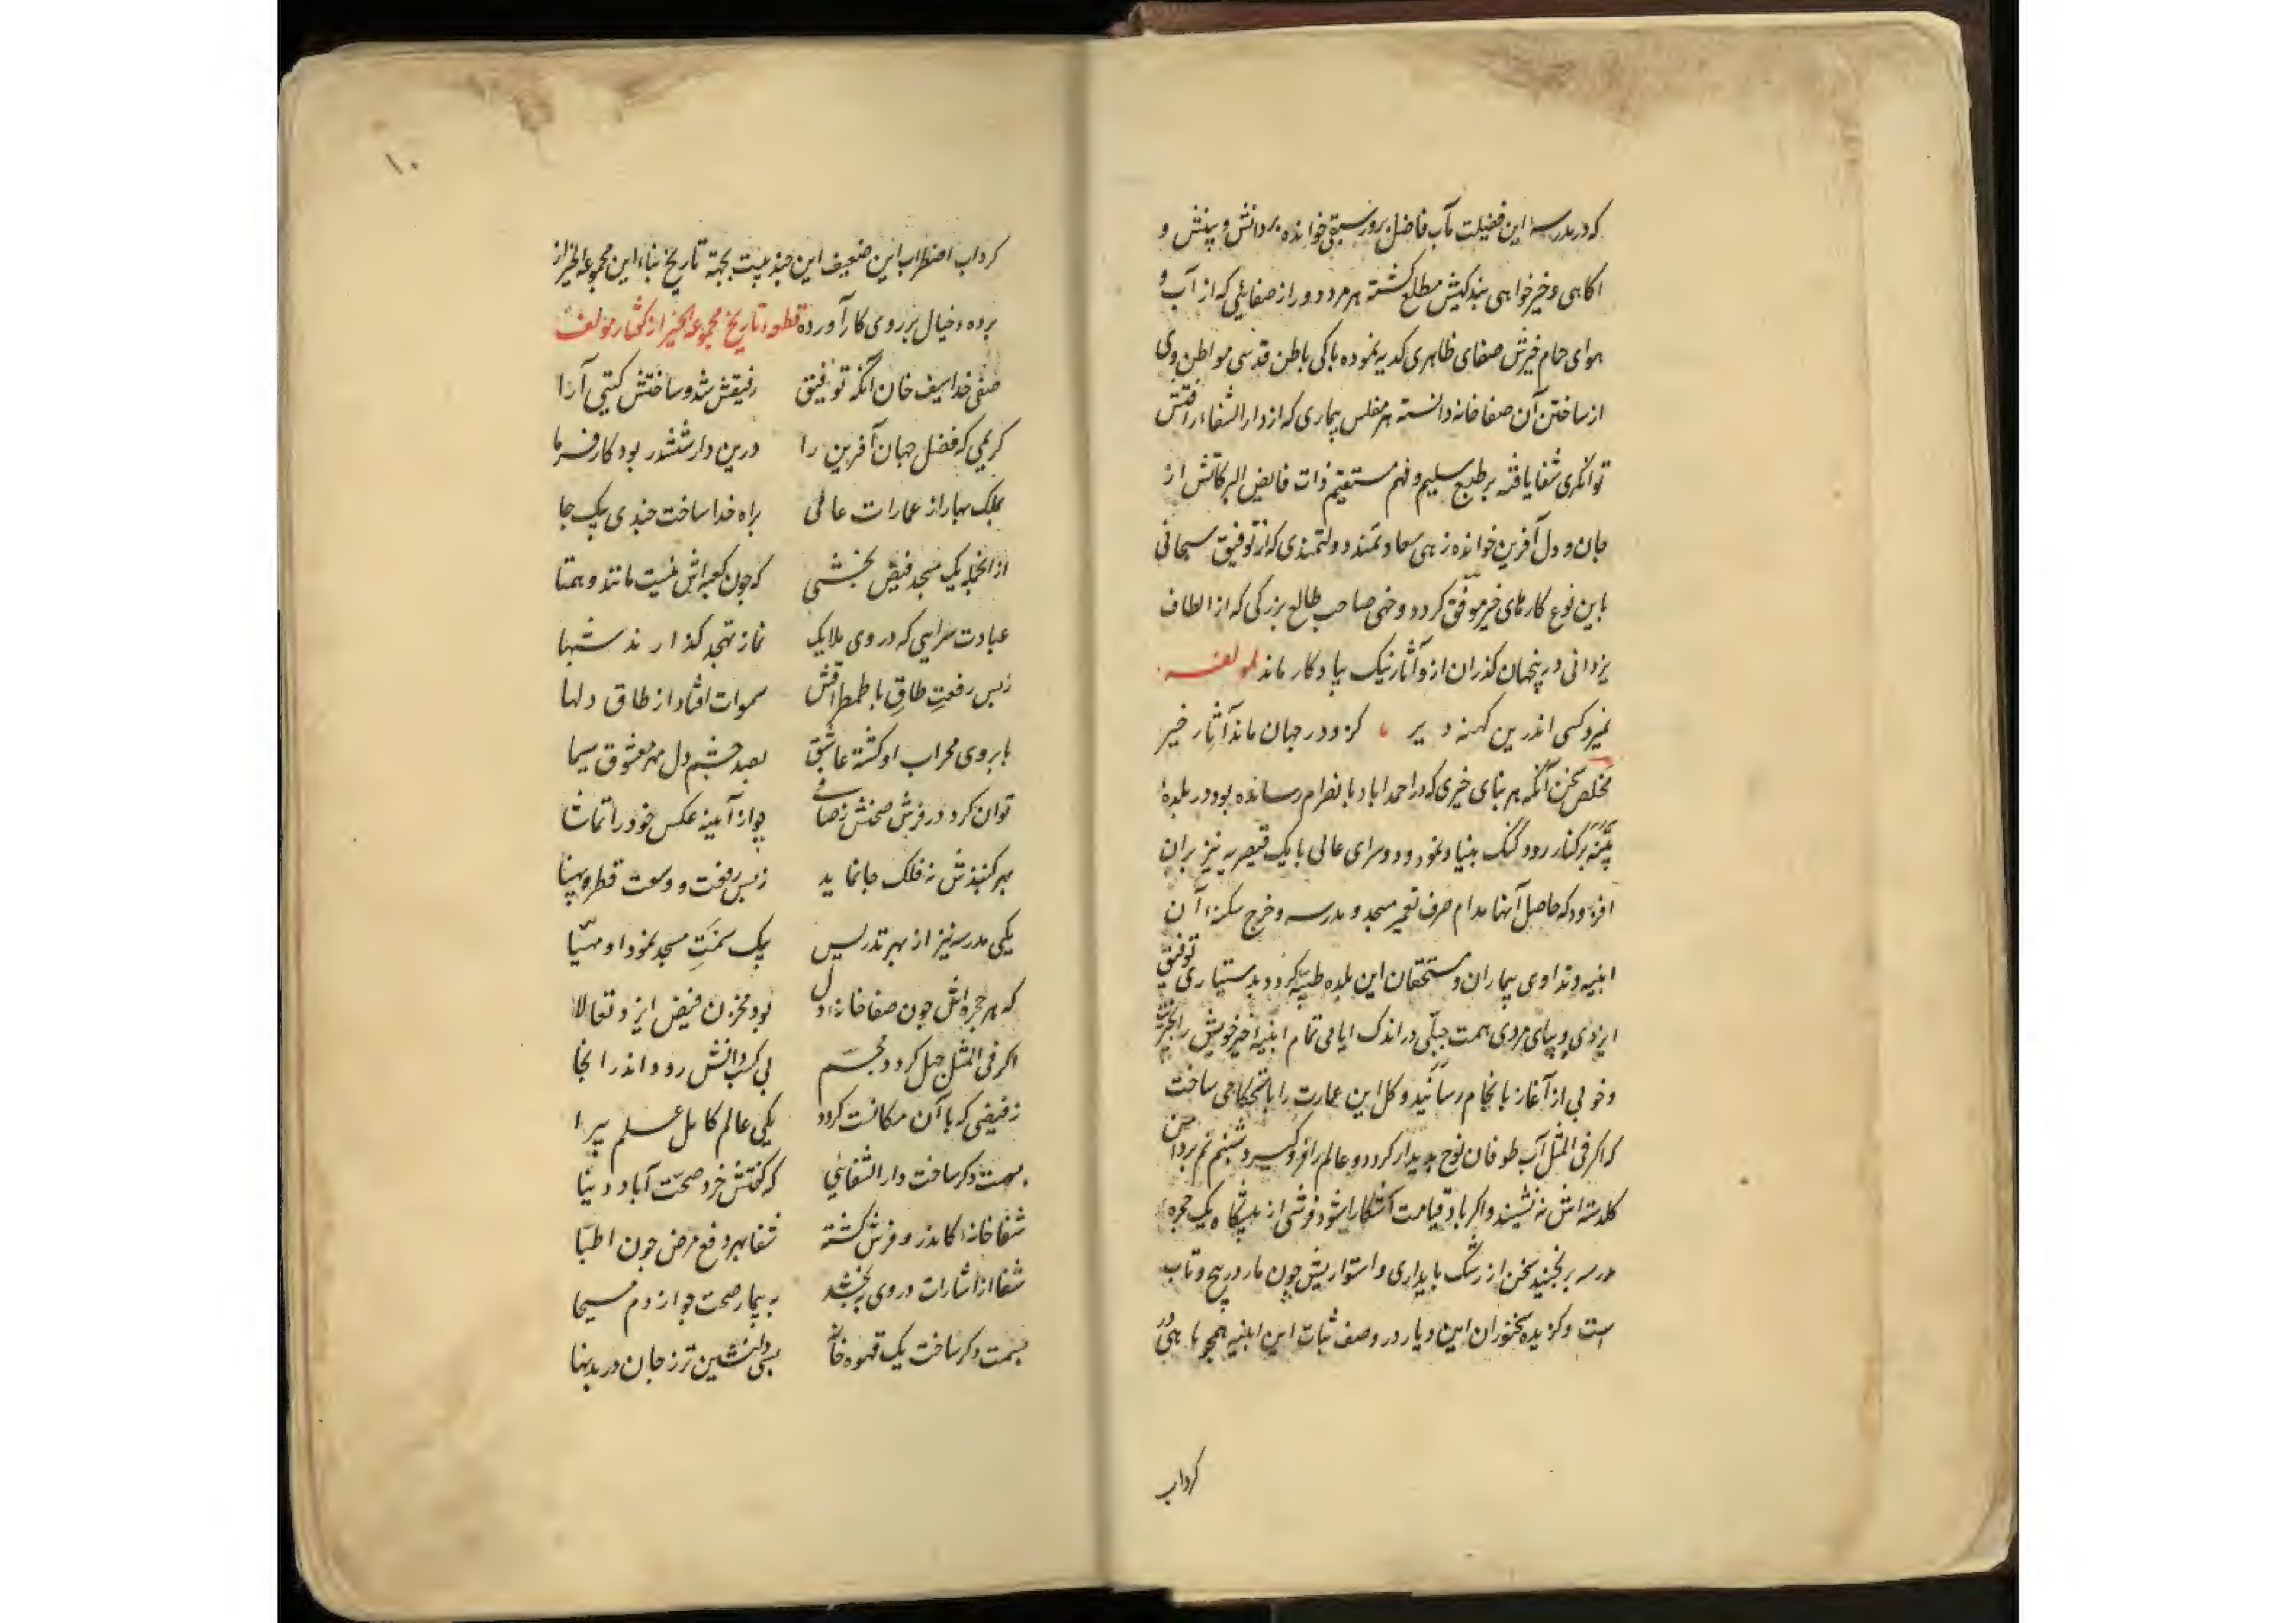 که در مدرسهٔ این فضیلت مآب فاضل پرور سبقی خوانده بر دانش و بینش و
آکاهی و خیرخواهی بندکیش مطلع کشته هر مرد دور از صفایی که از آب و
هوای حمام خیرش صفای ظاهری کدیه نموده باکی باطن قدسی مواطن وی
از ساختن آن صفاخانه دانسته هر مفلس بیماری که از دارالشفاء رافتش
توانکری شفا یافته بر طبع سلیم و فهم مستقیم ذات فایض البرکاتش از
جان و دل آفرین خوانده زهی سعادتمند دولتمندی که از توفیق سبحانی
باین نوع کارهای خیر موفق کردد و خهی صاحب طالع بزرکی که از الطاف
یزدانی درینجهان کذران ازو آثار نیک بیادکار ماند لمولفه
نمیرد کسی اندرین کهنه دیر کزو در جهان ماند آثار خیر
مخلص سخن آنکه هر بنای خیری که در احمداباد بانصرام رسانده بود در بلدهٔ
پتنه بر کنار رود کنک بنیاد نمود و دو سرای عالی با یک قیصریه نیز بران
افزود که حاصل آنها مدام صرف تعمیر مسجد و مدرسه و خرج سکنهٔ آن
ابنیه و تداوی بیماران و مستحقان این بلده طیبه کردد بدستیاری توفیق
ایزدی و پیای مردی همت جبلی در اندک ایامی تمام ابنیهٔ خیر خویش را بخیریت
و خوبی از آغاز بانجام رسانید و کل این عمارت را باستحکامی ساخت
که اکر فی المثل آب طوفان نوح پدیدار کردد و عالم را فرو کیرد شبنم نم بر دامن
کلدسته اش نه نشیند و اکر باد قیامت آشکارا شود فرشی از پیشکاه یک حجرهٔ
مدرسه بر نجنبد سخن از رشک پایداری و استواریش چون مار در پیچ و تاب
است و کزیده سخنوران این دیار در وصف ثبات این ابنیه همچو ماهی در
کرداب
۱۰
کرداب اضطراب این ضعیف این چند بیت بجهة تاریخ بناء این مجموعه الخیر از
پرده خیال بر روی کار آورده قطعه تاریخ مجموعه الخیر از کفتار مولف
صفی خدا سیف خان آنکه توفیق رفیقش شد و ساختش کیتی آرا
کریمی که فضل جهان آفرین را درین دار ششدر بود کارفرما
بملک بهار از عمارات عالی براه خدا ساخت چندی بیک جا
ازانجمله یک مسجد فیض بخشی که چون کعبه اش نیست مانند و همتا
عبادت سرایی که در وی ملایک نماز تهجد کذارند شبها
زبس رفعت طاق با طمطراقش سموات افتاد از طاق دلها
بابروی محراب او کشته عاشق بصد چشم دل مهر معشوق سیما
توان کرد در فرش صحنش ز صافی چو از آینه عکس خود را تماشا
بهر کنبذش نه فلک جا نماید زبس رفعت و وسعت قطر و پهنا
یکی مدرسه نیز از بهر تدریس بیک سمت مسجد نمود او مهیا
که هر حجره اش چون صفاخانهٔ دل بود مخزن فیض ایزد تعالا
اکر فی المثل جهل کردد مجسم پی کسب دانش رود اندر انجا
ز فیضی که با آن مکانست کردد یکی عالم کامل علم پیرا
بسمت دکر ساخت دارالشفائی که کفتش خرد صحت آباد دنیا
شفاخانهٔ کاندرو فرش کشته شفا بهر دفع مرض چون اطبا
شفا از اشارات در وی ببخشد به بیمار صحت چو از دم مسیحا
بسمت دکر ساخت یک قهوه خانه بسی دلنشین تر ز جان در بدنها